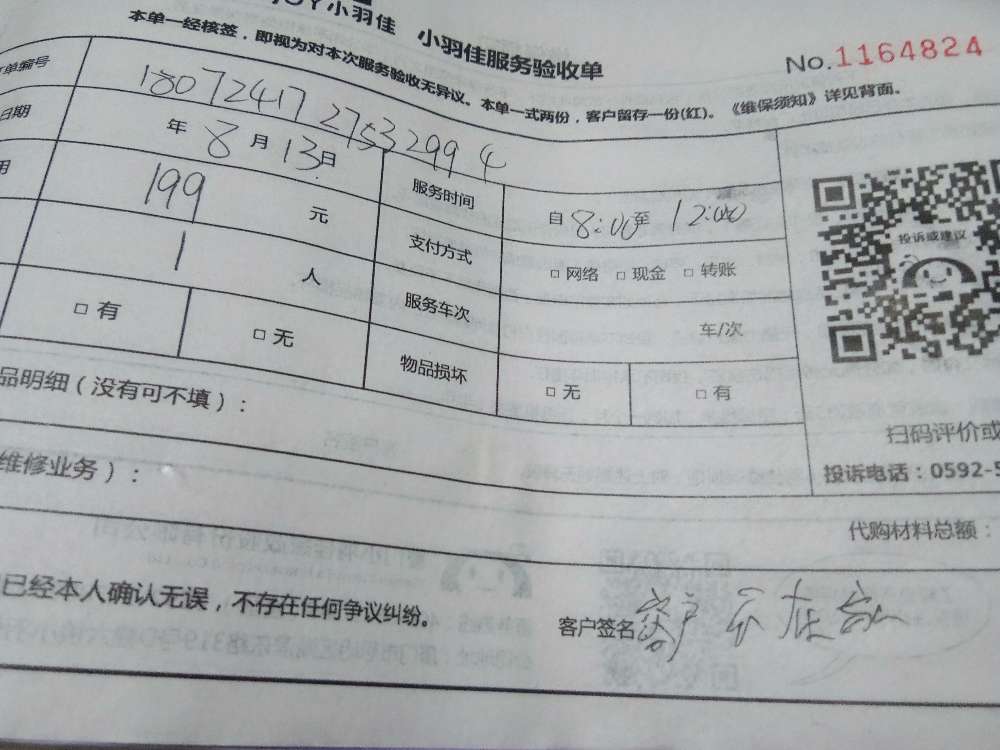 JOY小羽佳 小羽佳服务验收单
No.1164824
本单一经核签，即视为对本次服务验收无异议。本单一式两份，客户留存一份(红)。《维保须知》详见背面。
单编号 18072417 27532994
日期 年 8 月 13 日 服务时间 自 8:00 至 12:00
用 199 元 支付方式 □ 网络 □ 现金 □ 转账
1 人 服务车次 车/次
□ 有 □ 无 物品损坏 □ 无 □ 有
投诉或建议
品明细（没有可不填）：
扫码评价或
维修业务）：
投诉电话：0592-5
代购材料总额：
已经本人确认无误，不存在任何争议纠纷。
客户签名 客户不在家